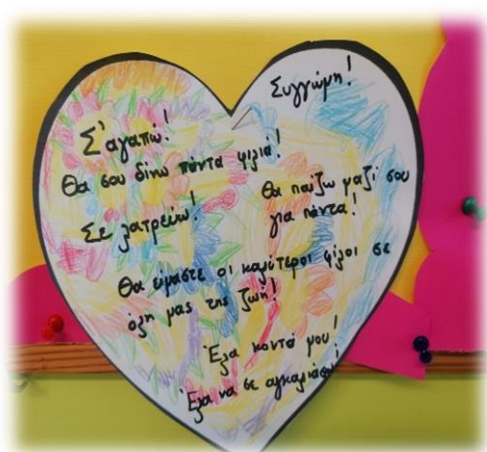 Συγγώμη!
Σ'αγαπώ!
Θα σου δίνω πάντα φιλιά!
Σε λατρεύω!
Θα παίζω μαζί σου
για πάντα!
Θα είμαστε οι καλύτεροι φίλοι σε
όλη μας της ζωή!
Έλα κοντά μου!
Έλα να σε αγκαλιάσω!